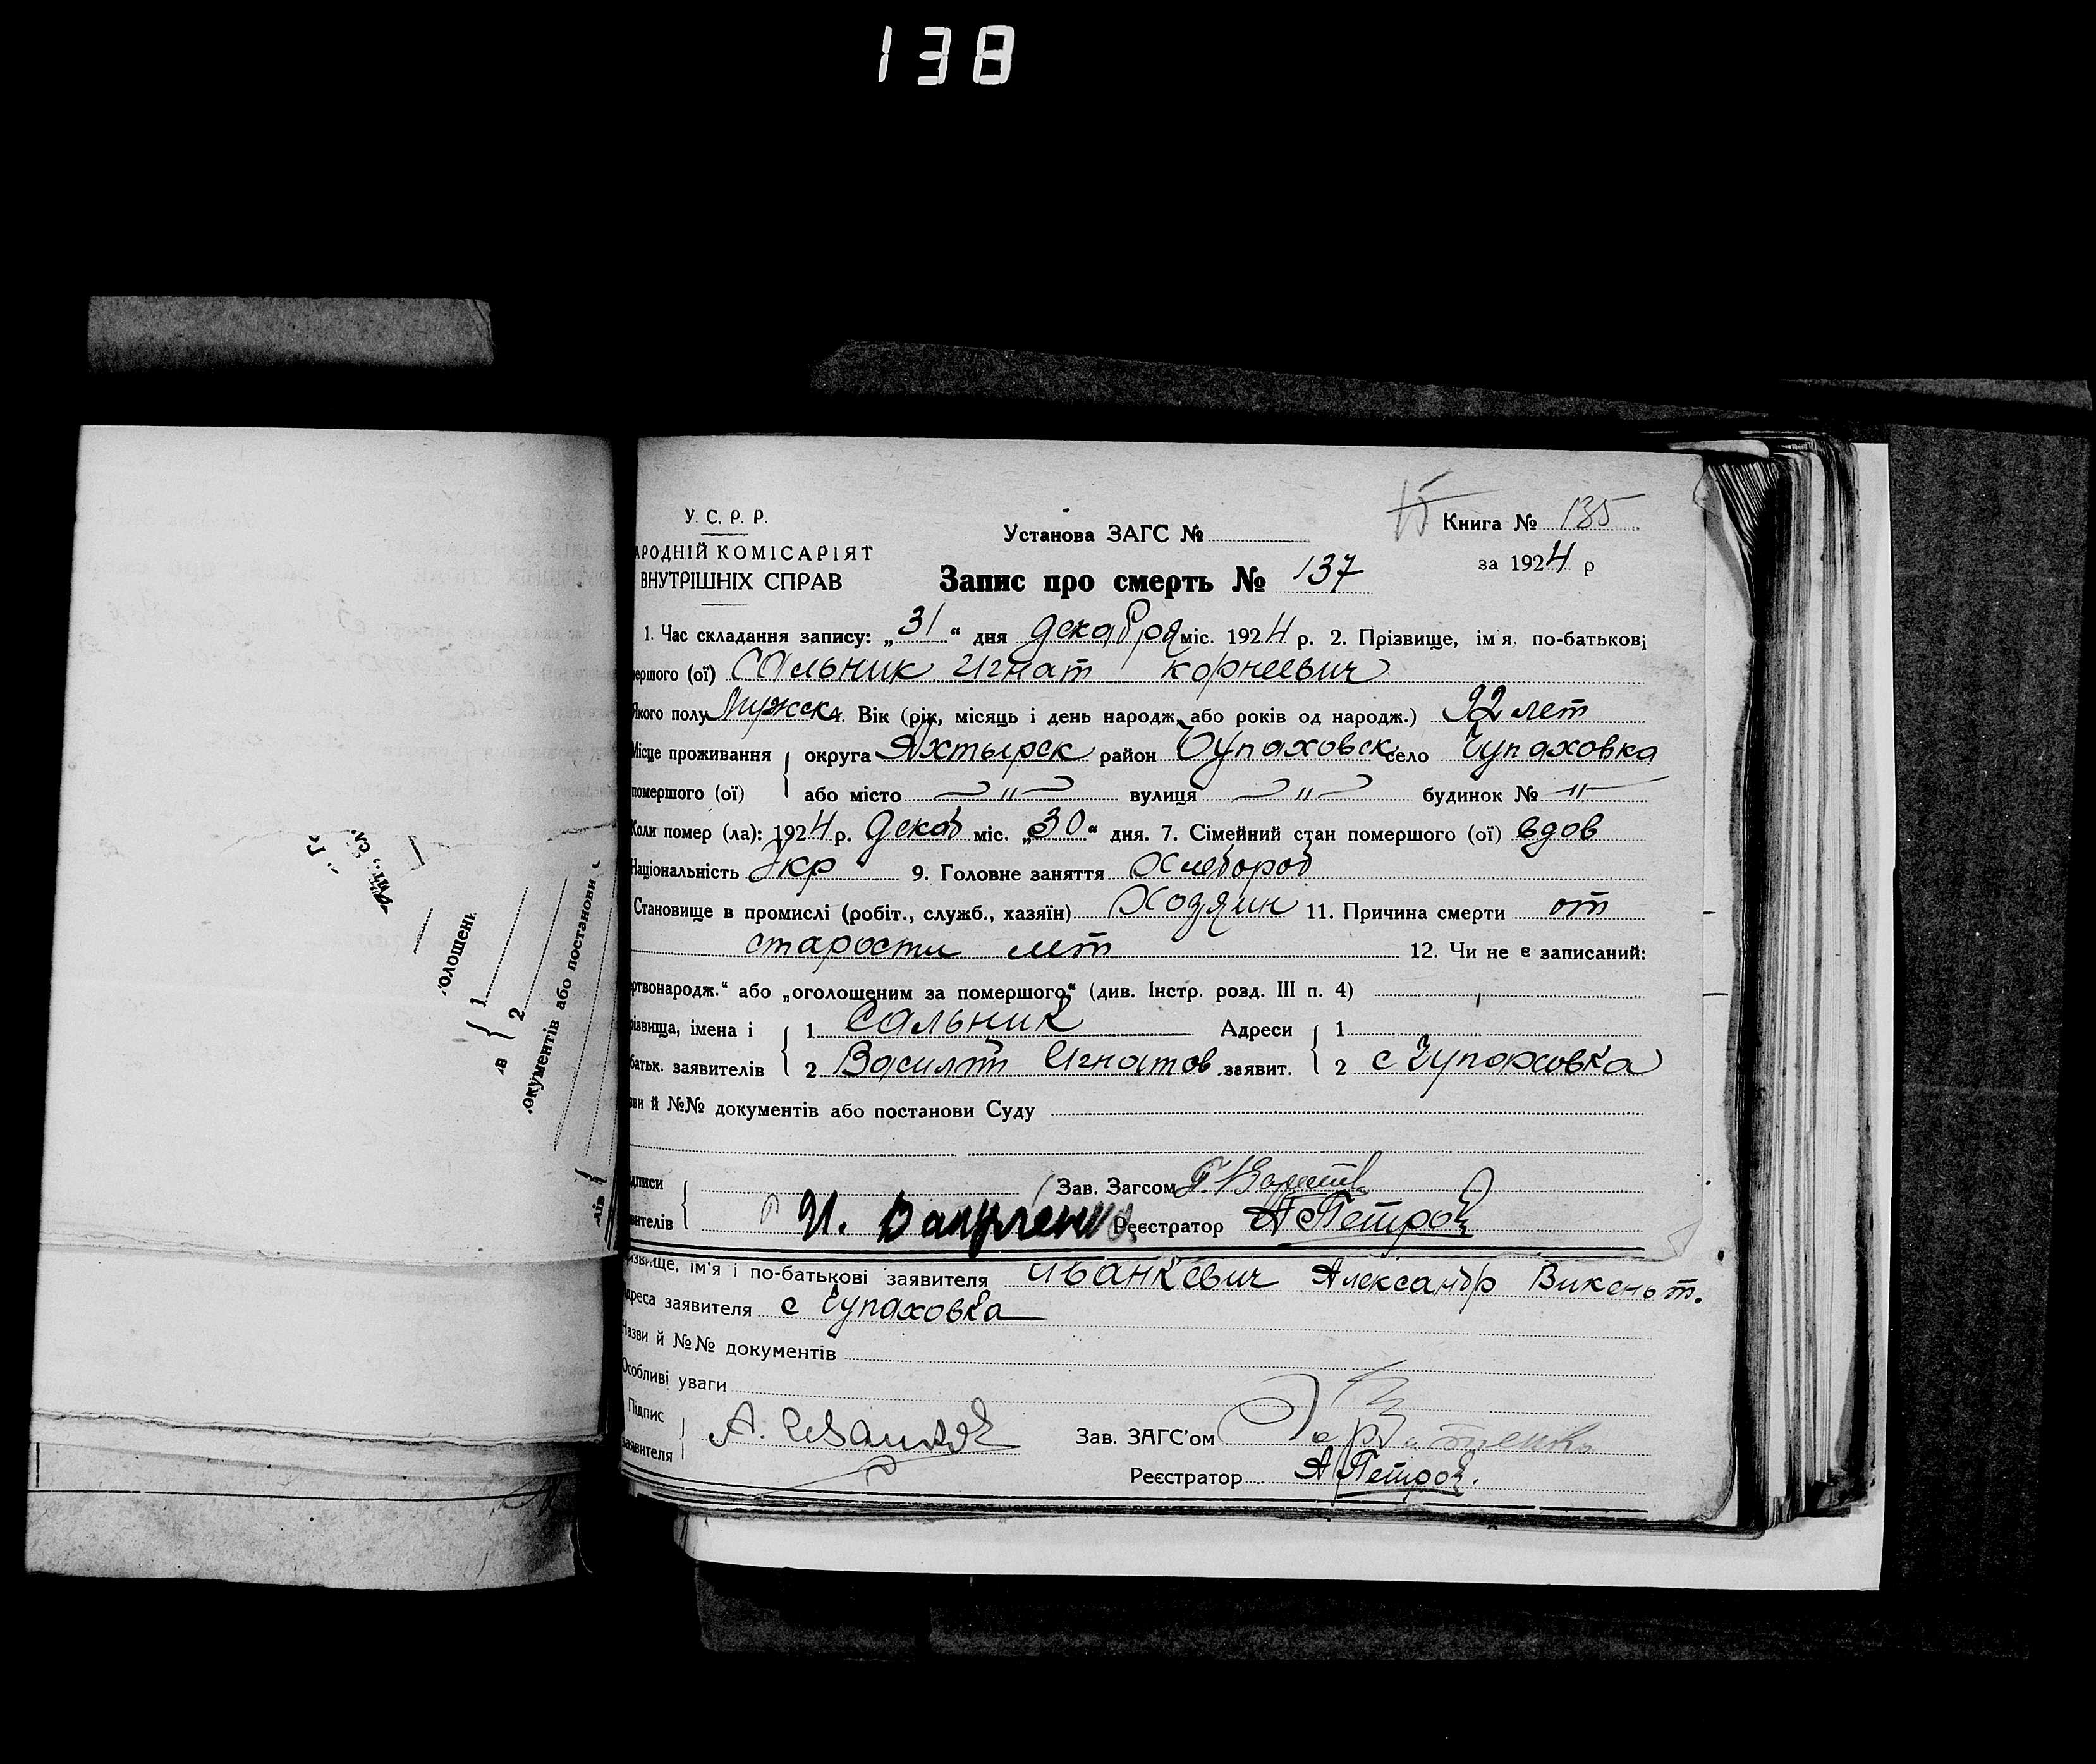 138
У. С. Р. Р.
АРОДНІЙ КОМІСАРІЯТ
ВНУТРІШНІХ СПРАВ
Установа ЗАГС №
15 Книга № 135
за 1924 р
Запис про смерть № 137
1. Час складання запису: „31“ дня декабря міс. 1924 р. 2. Прізвище, ім'я, по-батькові
мершого (ої) Сальник Игнат Корнеевич
Якого полу Мужск 4. Вік (рік, місяць і день народж. або років од народж.) 92 лет
Місце проживання округа Яхтырск район Чупаховск село Чупаховка
помершого (ої) або місто — " — вулиця — " — будинок № — " —
Коли помер (ла): 1924 р. декаб міс. „30“ дня. 7. Сімейний стан помершого (ої) вдов
Національність Укр 9. Головне заняття Хлебороб
Становище в промислі (робіт., служб., хазяїн) Хозяин 11. Причина смерти от
старости лет 12. Чи не є записаний:
ртвонародж.“ або „оголошеним за помершого“ (див. Інстр. розд. III п. 4)
різвища, імена і 1 Сальник Адреси 1
батьк. заявителів 2 Васили Игнатов заявит. 2 с Чупаховка
ви й №№ документів або постанови Суду
дписи Зав. Загсом
вителів И. Реєстратор А Петров
різвище, ім'я і по-батькові заявителя Иванкевич Александр Викеньт.
дреса заявителя с Чупаховка
Назви й №№ документів
Особливі уваги
Підпис А. Иванкев Зав. ЗАГС'ом
заявителя
Реєстратор А Петров.
олошени
1
2
окументів або постанови